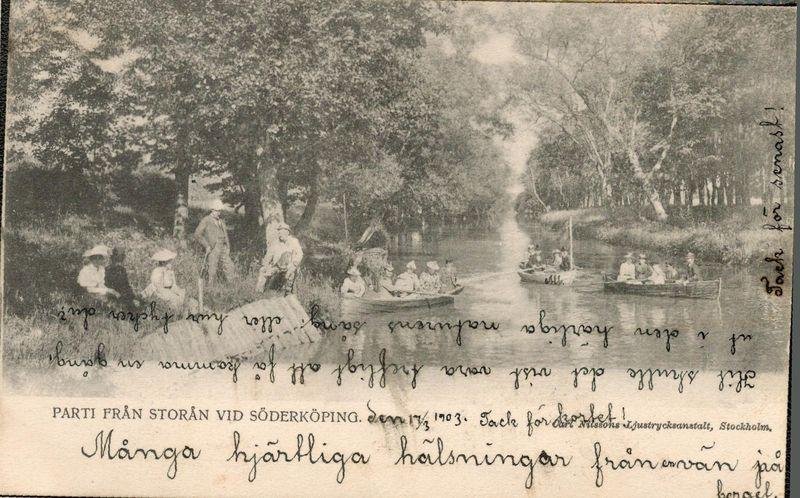 PARTI FRÅN STORÅN VID SÖDERKÖPING.
den 17/3 1903. Tack för kortet!
Carl Nilssons Ljustrycksanstalt, Stockholm.
Många hjärtliga hälsningar från en vän på
Hit skulle det vist vara trefligt att få komma en gång!
ut i den härliga naturens sång, eller hur tycker du?
Tack för senast!